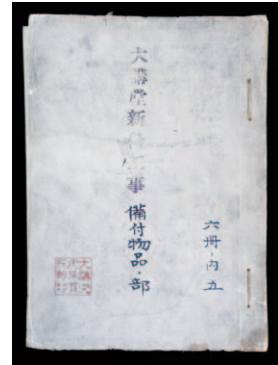 大講堂新築工事
備付物品ノ部
六冊ノ内五